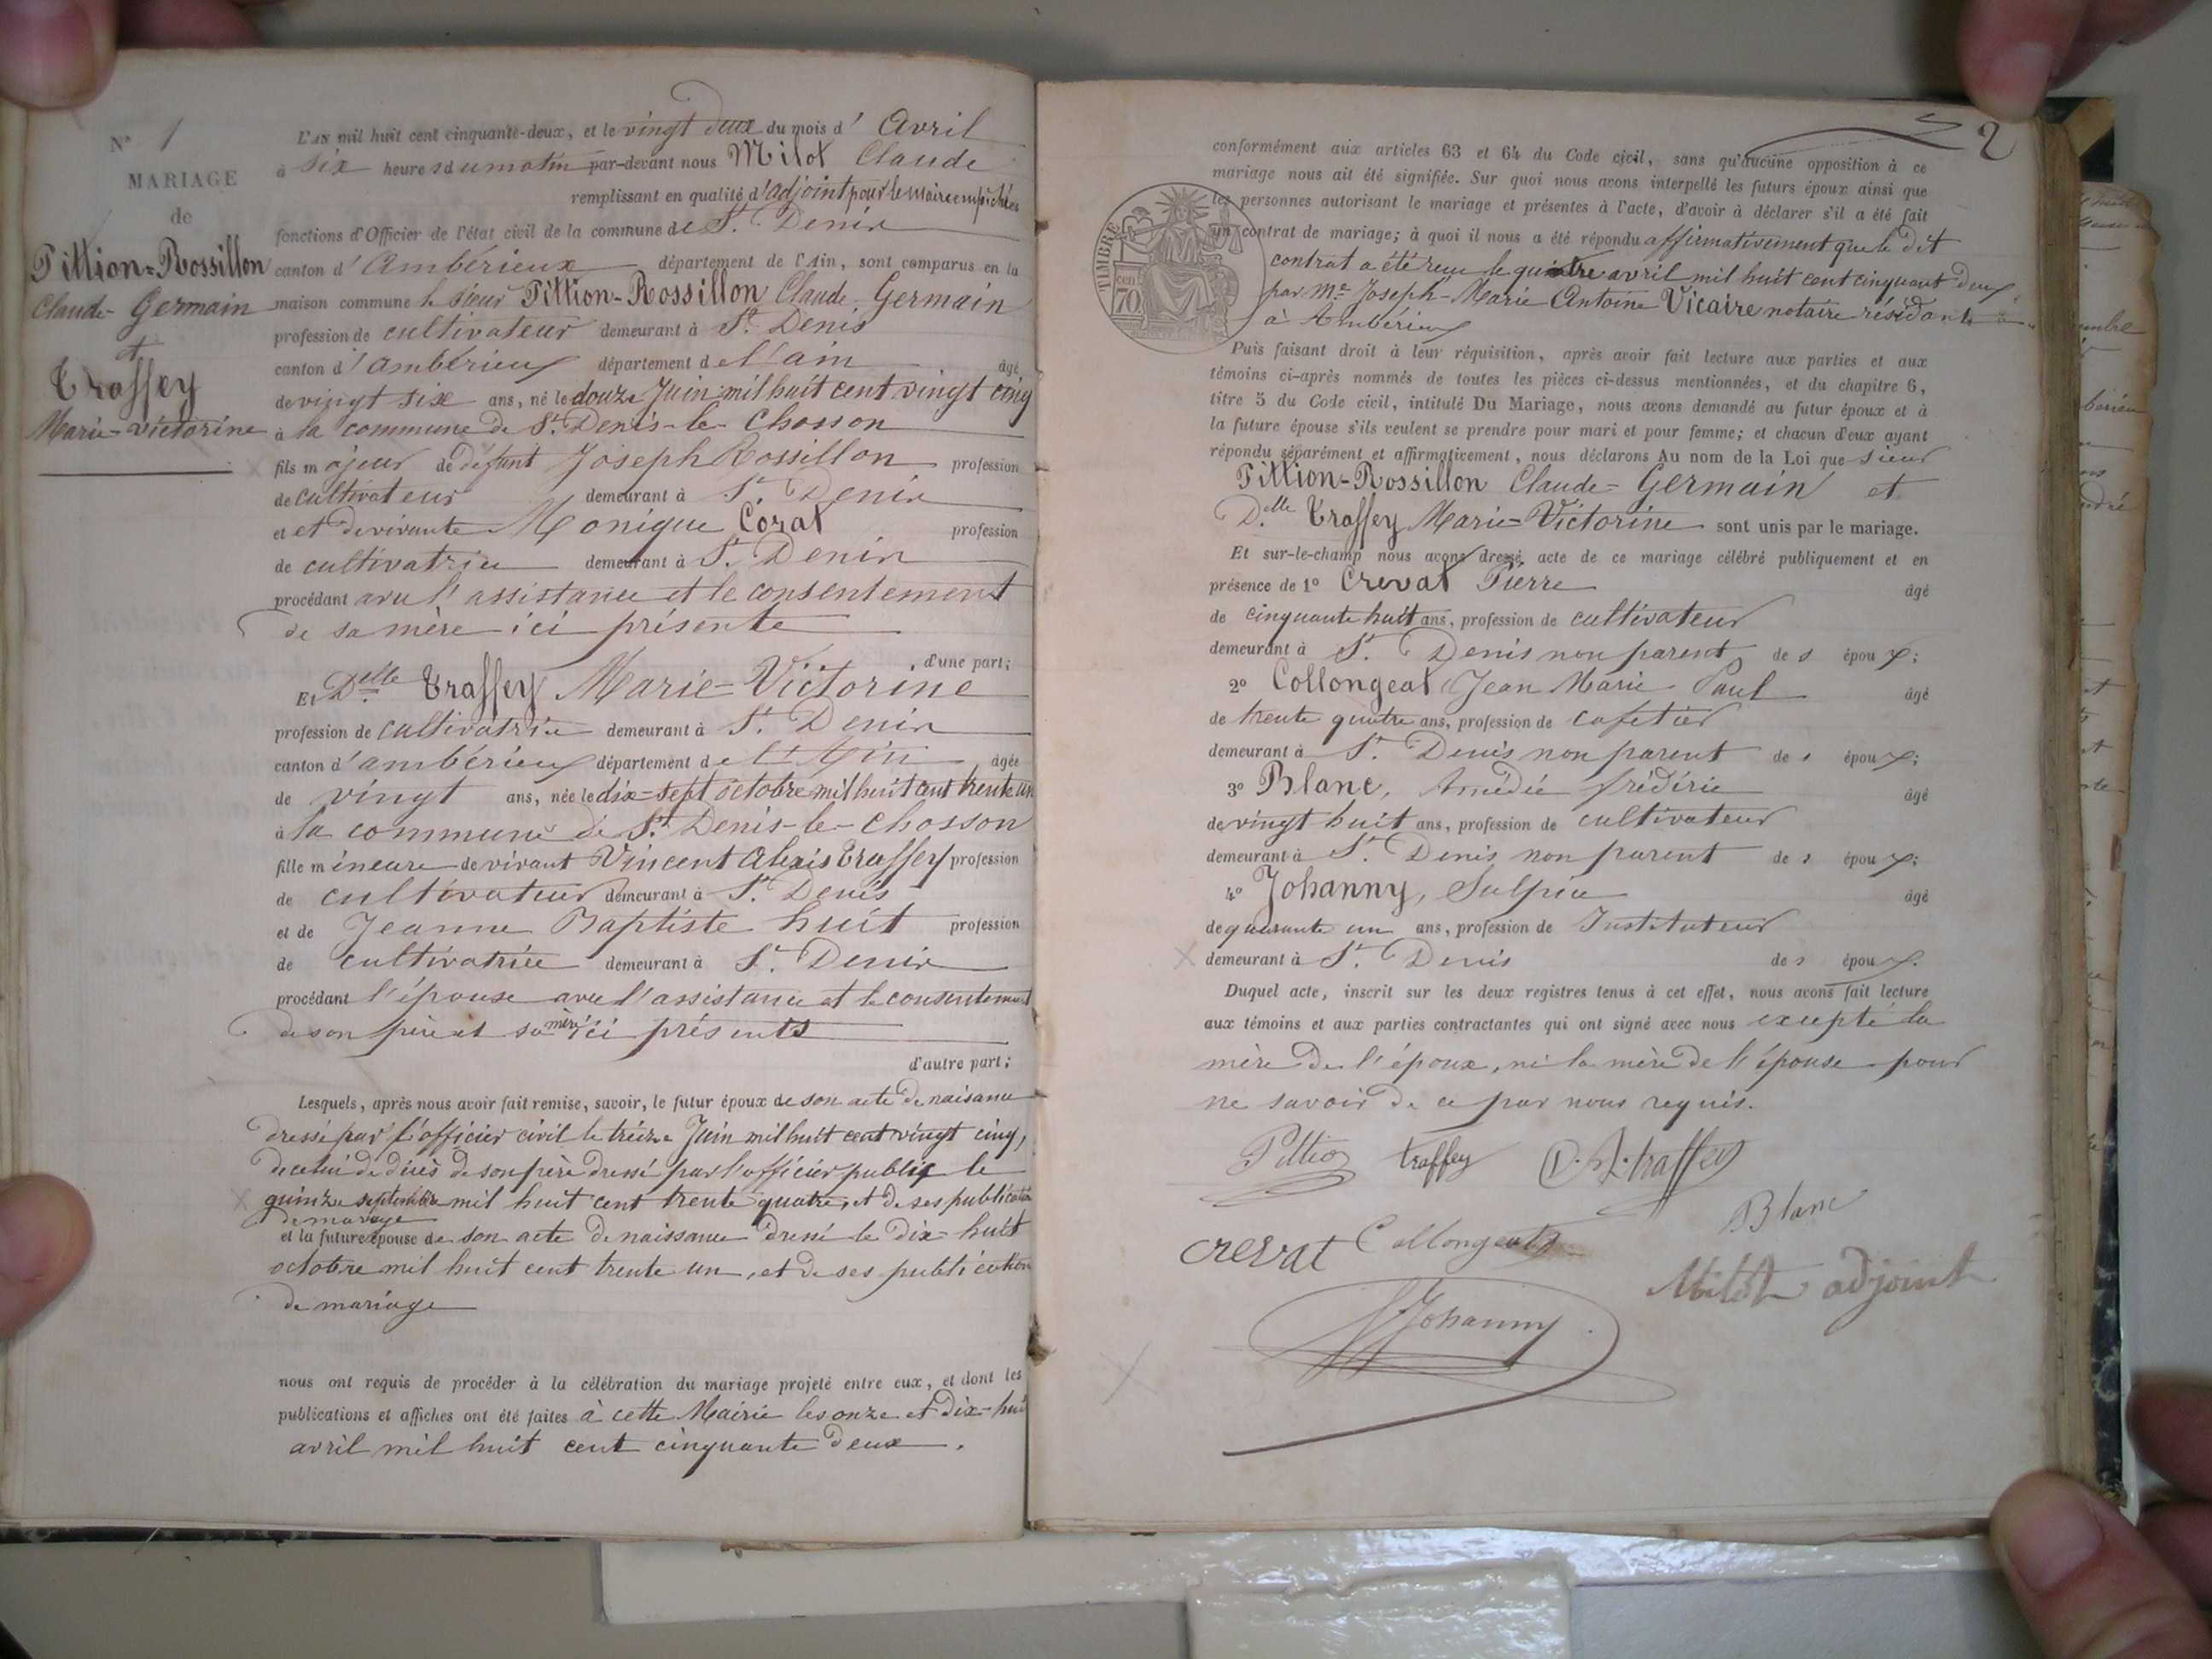 N° 1
MARIAGE
de
Pittion-Rossillon
Claude-Germain
et
Traffey
Marie-Victorine
L'AN mil huit cent cinquante-deux, et le vingt deux du mois d'Avril
à six heures du matin par-devant nous Milot Claude
remplissant en qualité d'adjoint pour le Maire empêché les
fonctions d'Officier de l'état civil de la commune de St. Denis
canton d'Ambérieux département de l'Ain, sont comparus en la
maison commune le sieur Pittion-Rossillon Claude-Germain
profession de cultivateur demeurant à St. Denis
canton d'ambérieux département de l'ain âgé
de vingt six ans, né le douze Juin mil huit cent vingt cinq
à la commune de St. Denis-le-Chosson
fils majeur de défunt Joseph Rossillon profession
de cultivateur demeurant à St. Denis
et et de vivante Monique Corat profession
de cultivatrice demeurant à St. Denis
procédant avec l'assistance et le consentement
de sa mère ici présente
d'une part;
Et Delle Traffey Marie-Victorine
profession de cultivatrice demeurant à St. Denis
canton d'ambérieux département de l'Ain âgée
de vingt ans, née le dix-sept octobre mil huit cent trente un
à la commune de St. Denis-le-Chosson
fille mineure de vivant Vincent Alexis Traffey profession
de cultivateur demeurant à St. Denis
et de Jeanne Baptiste huit profession
de cultivatrice demeurant à St. Denis
procédant l'épouse avec l'assistance et le consentement
de son père et sa mère ici présents
d'autre part;
Lesquels, après nous avoir fait remise, savoir, le futur époux de son acte de naisance
dressé par l'officier civil le treize Juin mil huit cent vingt cinq,
de celui de décès de son père dressé par l'officier public le
quinze septembre mil huit cent trente quatre, et de ses publication
de mariage
et la future épouse de son acte de naissance dressé le dix-huit
octobre mil huit cent trente un, et de ses publication
de mariage
nous ont requis de procéder à la célébration du mariage projeté entre eux, et dont les
publications et affiches ont été faites à cette Mairie les onze et dix-huit
avril mil huit cent cinquante deux.
2
conformément aux articles 63 et 64 du Code civil, sans qu'aucune opposition à ce
mariage nous ait été signifiée. Sur quoi nous avons interpellé les futurs époux ainsi que
les personnes autorisant le mariage et présentes à l'acte, d'avoir à déclarer s'il a été fait
un contrat de mariage; à quoi il nous a été répondu affirmativement que le dit
contrat a été reçu le quatre avril mil huit cent cinquant deux
par Me. Joseph-Marie Antoine Vicaire notaire résidant
à Ambérieux
TIMBRE
cen
70
Puis faisant droit à leur réquisition, après avoir fait lecture aux parties et aux
témoins ci-après nommés de toutes les pièces ci-dessus mentionnées, et du chapitre 6,
titre 5 du Code civil, intitulé Du Mariage, nous avons demandé au futur époux et à
la future épouse s'ils veulent se prendre pour mari et pour femme; et chacun d'eux ayant
répondu séparément et affirmativement, nous déclarons Au nom de la Loi que sieur
Pittion-Rossillon Claude-Germain et
Delle Traffey Marie-Victorine sont unis par le mariage.
Et sur-le-champ nous avons dressé acte de ce mariage célébré publiquement et en
présence de 1° Crevat Pierre âgé
de cinquante huit ans, profession de cultivateur
demeurant à St. Denis non parent des époux;
2° Collongeat Jean Marie Paul âgé
de trente quatre ans, profession de cafetier
demeurant à St. Denis non parent des époux;
3° Blanc, Amédée frédéric âgé
de vingt huit ans, profession de cultivateur
demeurant à St. Denis non parent des époux;
4° Johanny, Sulpice âgé
de quarante un ans, profession de Instituteur
demeurant à St. Denis des époux.
Duquel acte, inscrit sur les deux registres tenus à cet effet, nous avons fait lecture
aux témoins et aux parties contractantes qui ont signé avec nous excepté la
mère de l'époux, ni la mère de l'épouse pour
ne savoir de ce par nous requis.
Pittion traffey traffey
Blanc
crevat Collongeat
Milot adjoint
Johanny